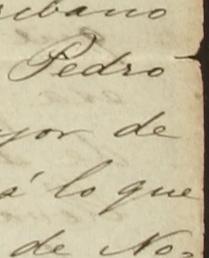 cribano
Pedro
yor de
á lo que
de No-